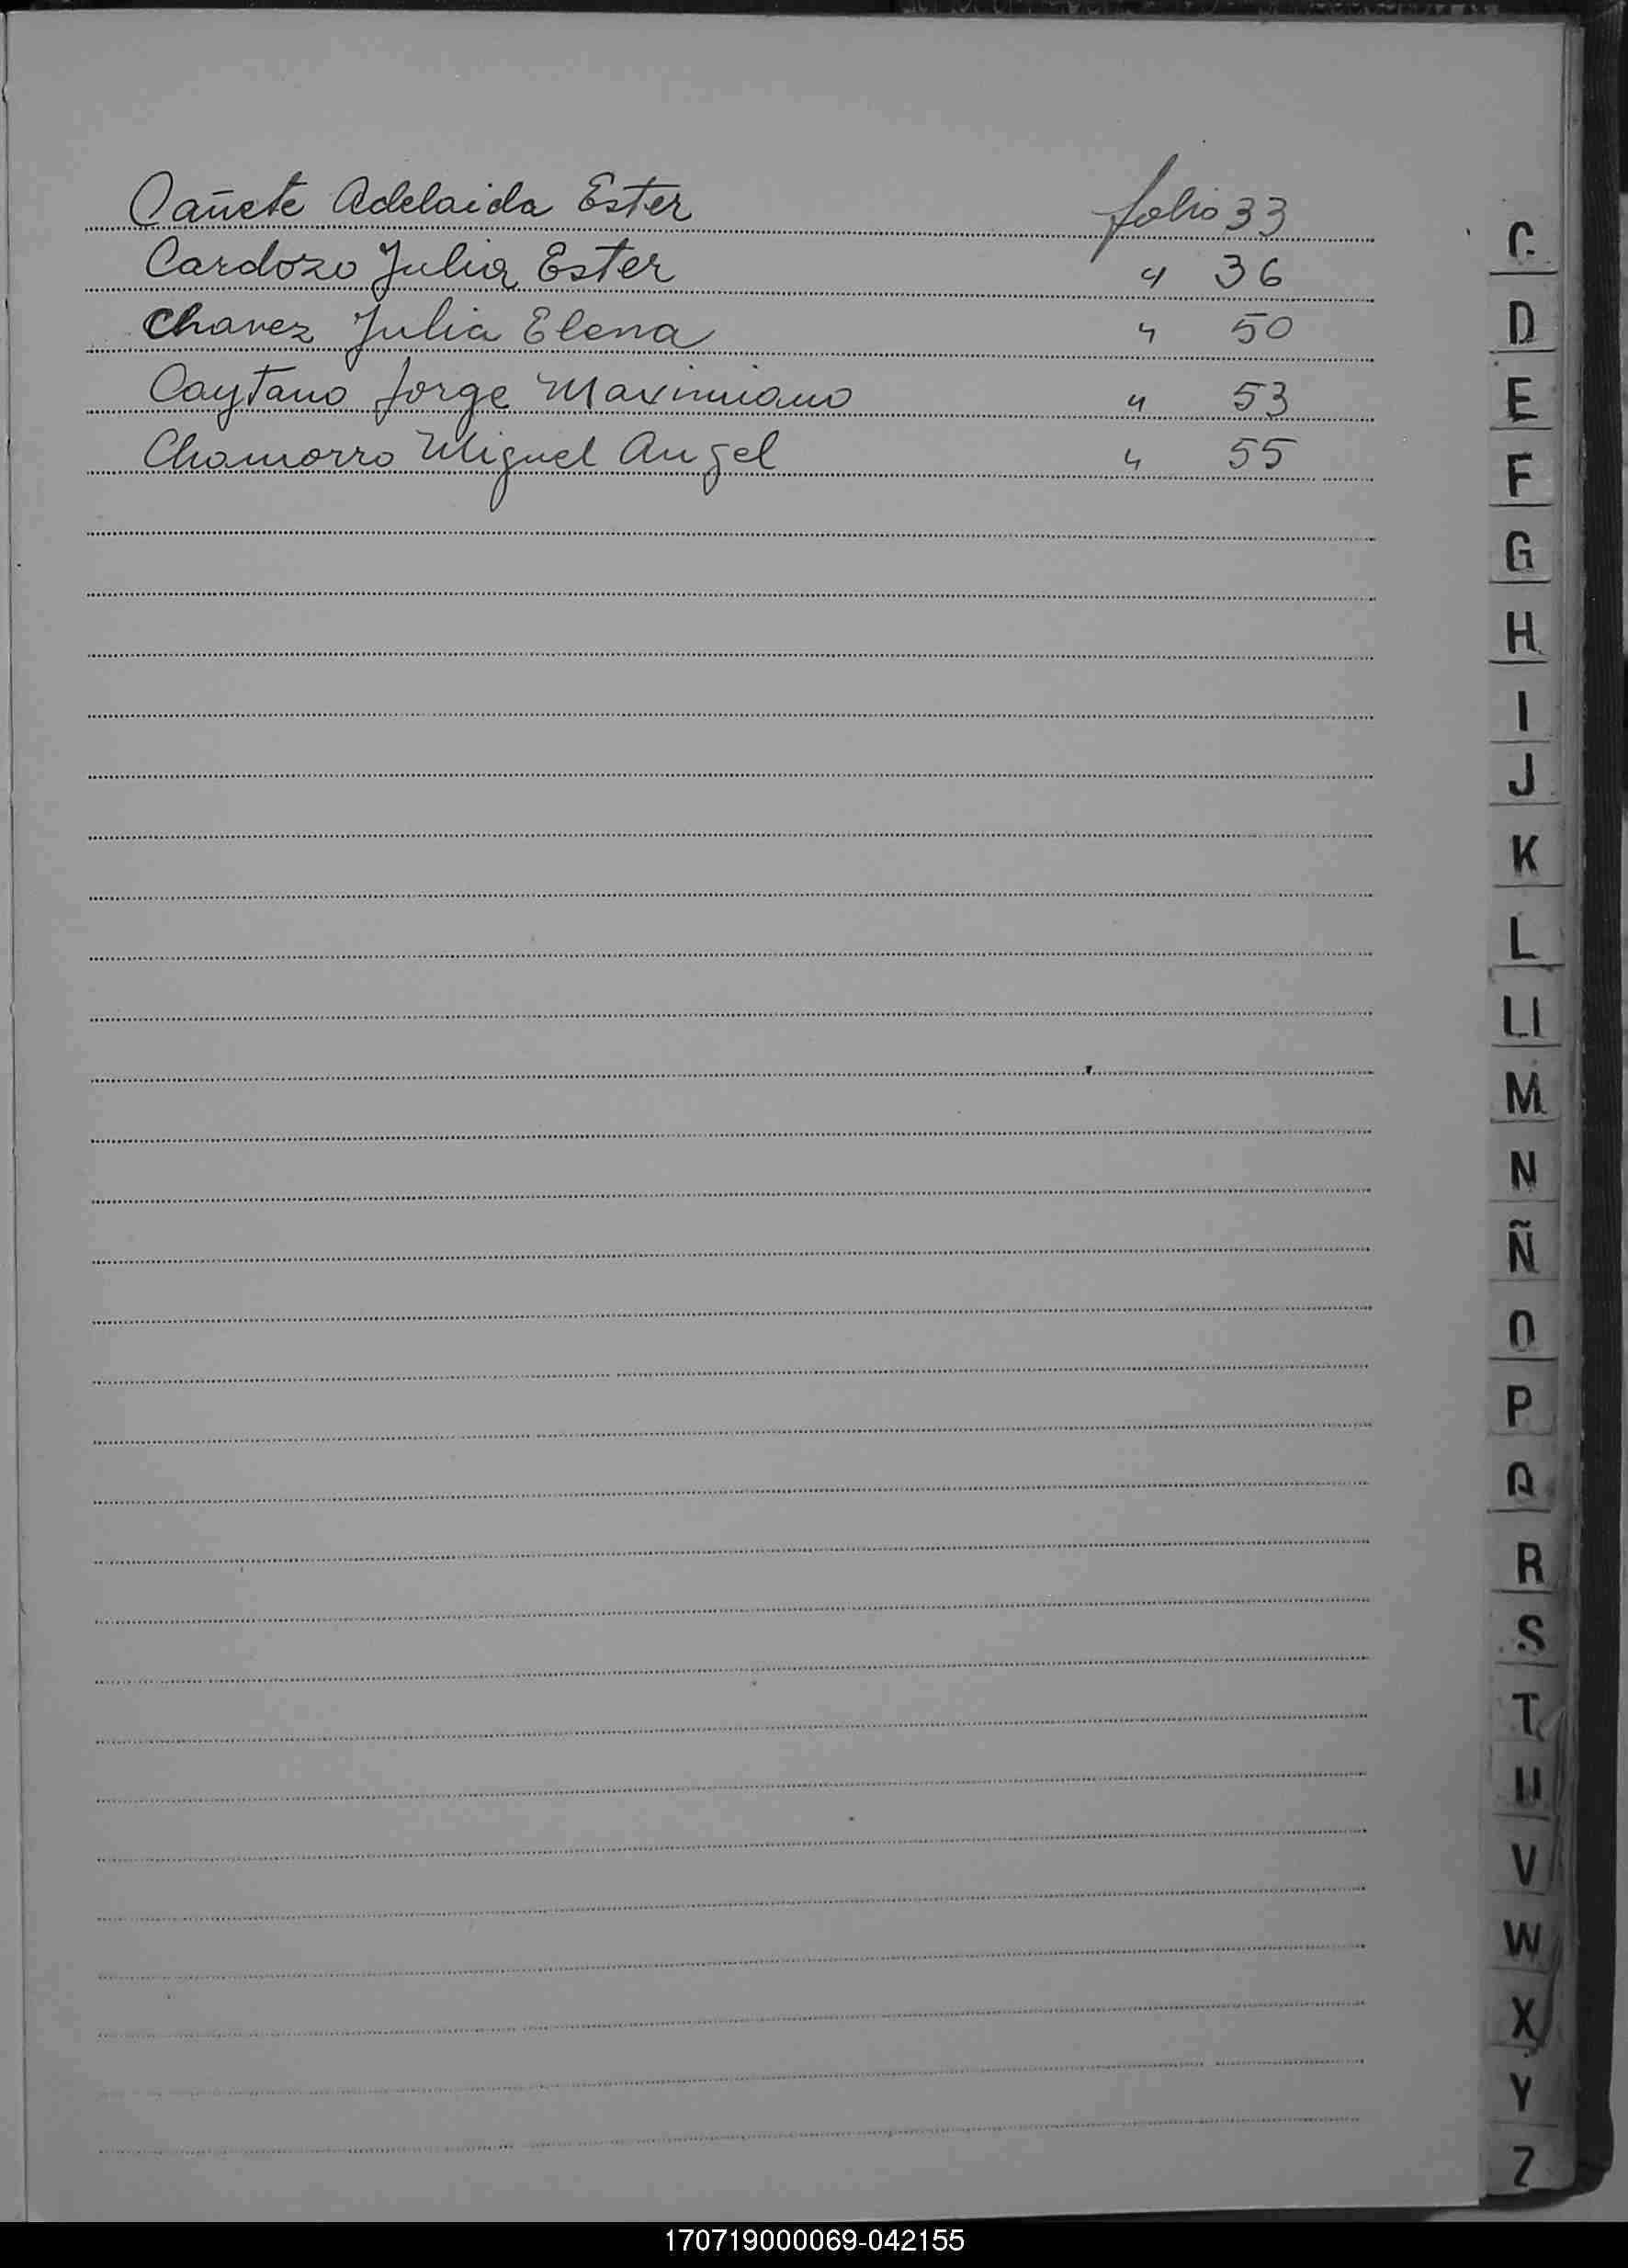 Cañete Adelaida Ester folio 33
Cardozo Julia Ester " 36
Chavez Julia Elena " 50
Caytano Jorge Maximiano " 53
Chamorro Miguel Angel " 55
C
D
E
F
G
H
I
J
K
L
Ll
M
N
Ñ
O
P
Q
R
S
T
U
V
W
X
Y
Z
170719000069-042155